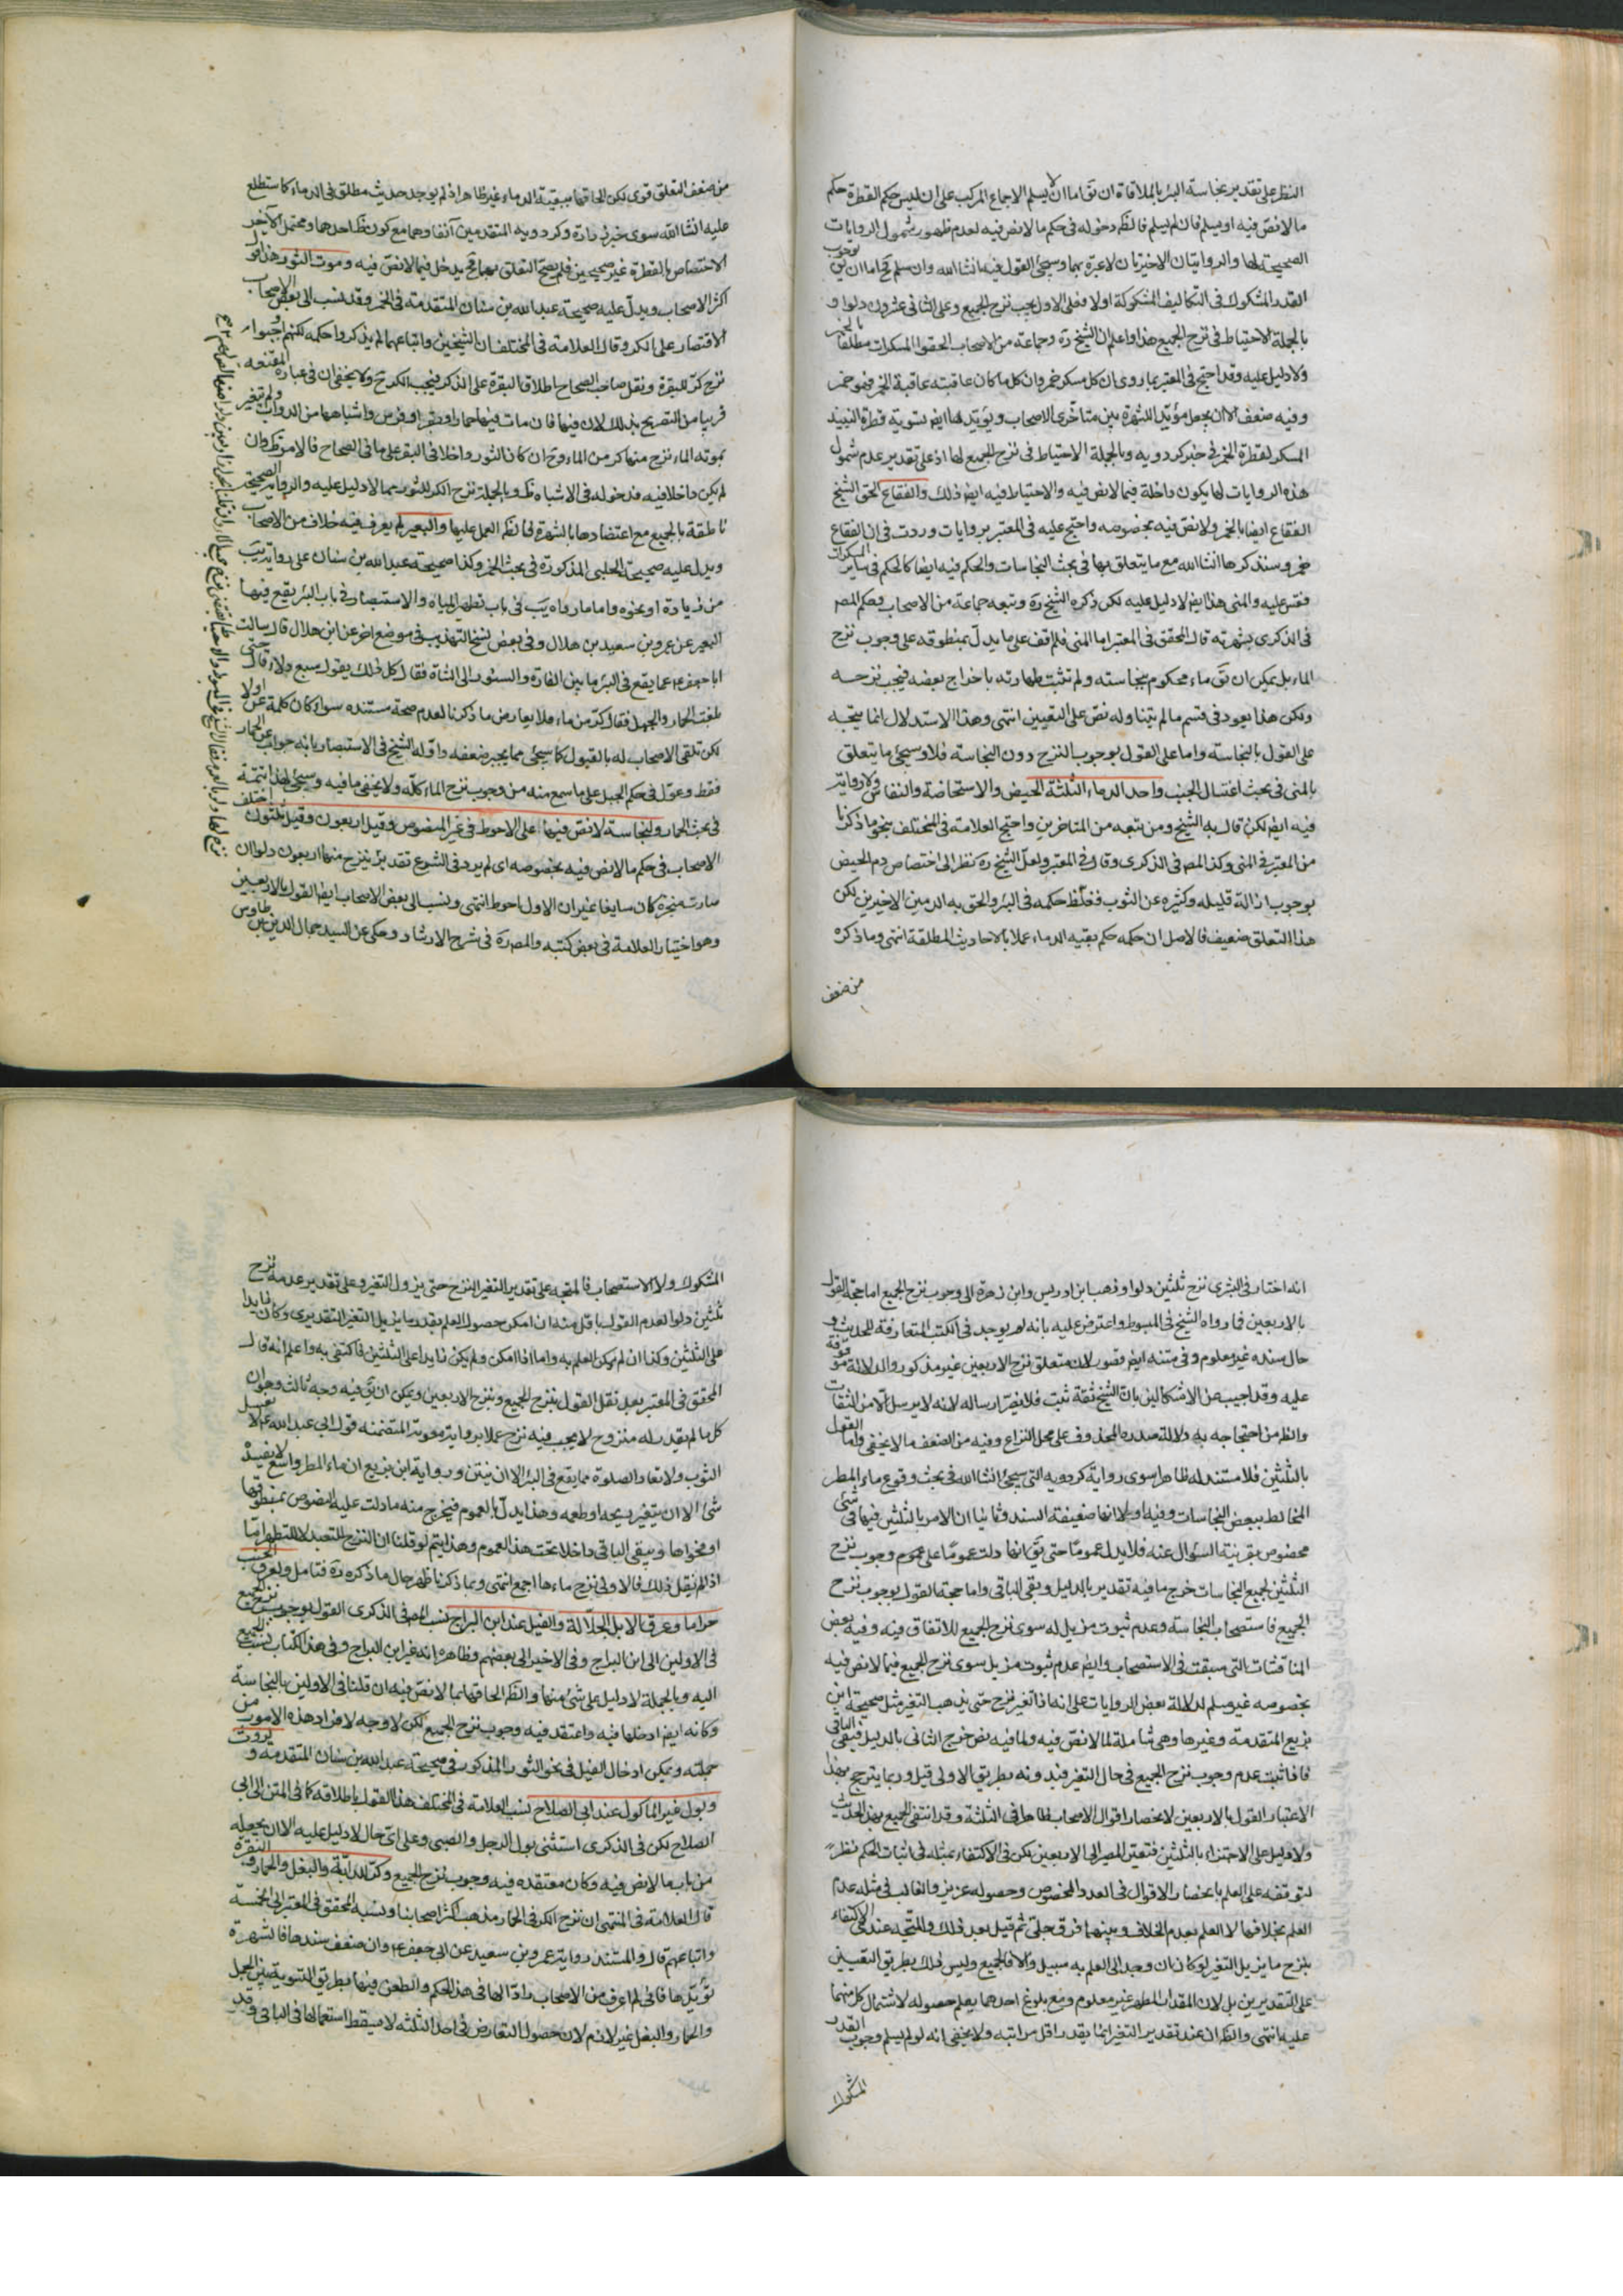 النظر على تقدير نجاسة البئر بالملاقاة ان يق اما ان لا يسلم الاجماع المركب على ان ليس حكم القطرة حكم
ما لا نص فيه او يسلم فان لم يسلم فالظ دخوله فى حكم ما لا نص فيه لعدم ظهور شمول الروايات
الصحيحة لها والروايتان الاخيرتان لا عبرة بهما وسيجئ القول فيه انشا الله وان سلم فح اما ان يق بوجوب
القدر المشكوك فى التكاليف المشكوكة اولا فعلى الاول يجب نزح الجميع وعلى الثانى عشرون دلوا و
بالجملة الاحتياط فى نزح الجميع هذا واعلم ان الشيخ ره وجماعة من الاصحاب الحقوا المسكرات مطلقا بالخمر
ولا دليل عليه وقد احتج فى المعتبر بما روى ان كل مسكر خمر وان كل ما كان عاقبته عاقبة الخمر فهو خمر
وفيه ضعف الا ان يجعل مؤيدا للشهرة بين متأخرى الاصحاب ويؤيد لها ايض تسوية قطرة النبيذ
المسكر لقطرة الخمر فى خبر كردويه وبالجملة الاحتياط فى نزح الجميع لها اذ على تقدير عدم شمول
هذه الروايات لها يكون داخلة فيما لا نص فيه والاحتياط فيه ايض ذلك والفقاع الحق الشيخ
الفقاع ايضا بالخمر ولا نص فيه بخصوصه واحتج عليه فى المعتبر بروايات وردت فى ان الفقاع
خمر وسنذكرها انشا الله مع ما يتعلق بها فى بحث النجاسات والحكم فيه ايضا كالحكم فى ساير المسكرات
فقس عليه والمنى هذا ايض لا دليل عليه لكن ذكره الشيخ ره وتبعه جماعة من الاصحاب وحكم المص
فى الذكرى بشهرته قال المحقق فى المعتبر اما المنى فلم اقف على ما يدل بمنطوقه على وجوب نزح
الماء بل يمكن ان يق ماء محكوم بنجاسته ولم تثبت طهارته باخراج بعضه فيجب نزحه
ولكن هذا يعود فى قسم ما لم يتناوله نص على التعيين انتهى وهذا الاستدلال انما يتجه
على القول بالنجاسة واما على القول بوجوب النزح دون النجاسة فلا وسيجئ ما يتعلق
بالمنى فى بحث اغتسال الجنب واحد الدماء الثلثة الحيض والاستحاضة والنفاس ولا رواية
فيه ايض لكن قال به الشيخ ومن تبعه من المتاخرين واحتج العلامة فى المختلف بنحو ما ذكرنا
من المعتبر فى المنى وكذا المص فى الذكرى وقال فى المعتبر ولعل الشيخ ره نظر الى اختصاص دم الحيض
بوجوب ازالة قليله وكثيره عن الثوب فغلظ حكمه فى البئر والحق به الدمين الاخيرين لكن
هذا التعلق ضعيف فالاصل ان حكمه حكم بقيه الدماء عملا بالاحاديث المطلقة انتهى وما ذكره
من ضعف
من ضعف التعلق قوى لكن الحاقها ببقية الدماء غير ظاهر اذ لم يوجد حديث مطلق فى الدماء كما ستطلع
عليه انشا الله سوى خبرى زرارة وكردويه المتقدمين آنفا وهما مع كون ظ احدهما ومحتمل الآخر
الاختصاص بالقطرة غير صحيحين فلم يصح التعلق بهما فح يدخل فيما لا نص فيه وموت الثور هذا قول
اكثر الاصحاب ويدل عليه صحيحة عبد الله بن سنان المتقدمة فى الخمر وقد نسب الى بعض الاصحاب
الاقتصار على الكر وقال العلامة فى المختلف ان الشيخين واتباعهما لم يذكروا حكمه لكنهم اوجبوا
نزح كر للبقرة ونقل صاحب الصحاح اطلاق البقرة على الذكر فيجب الكر ح ولا يخفى ان فى عبارة المقنعة
قريبا من التصريح بذلك لان فيها فان مات فيها حمار او بقر او فرس واشباهها من الدواب ولم يتغير
بموته الماء نزح منها كر من الماء وح ان كان الثور داخلا فى البقر على ما فى الصحاح فالامر ظ وان
لم يكن داخلا فيه فدخوله فى الاشباه ظ وبالجملة نزح الكر للثور مما لا دليل عليه والرواية الصحيحة
ناطقة بالجميع مع اعتضادها بالشهرة فالظ العمل عليها والبعير لم يعرف فيه خلاف من الاصحاب
ويدل عليه صحيحة الحلبى المذكورة فى بحث الخمر وكذا صحيحة عبد الله بن سنان على رواية يب
من زيادة او نحوه واما ما رواه يب فى باب تطهير المياه والاستبصار فى باب البئر يقع فيها
البعير عن عمرو بن سعيد بن هلال وفى بعض نسخ التهذيب فى موضع اخر عن ابن هلال قال سالت
ابا جعفر ع عما يقع فى البئر ما بين الفارة والسنور الى الشاة فقال كل ذلك يقول سبع دلاء قال حتى
بلغت الحمار والجمل فقال كر من ماء فلا يعارض ما ذكرنا لعدم صحة مستنده سواء كان كلمة عن اولا
لكن تلقى الاصحاب له بالقبول كما سيجئ مما يجبر ضعفه واوله الشيخ فى الاستبصار بانه جواب عن الحمار
فقط وعول فى حكم الجمل على ما سمع منه من وجوب نزح الماء كله ولا يخفى ما فيه وسيجئ لهذا تتمة
فى بحث الحمار ولنجاسة لا نص فيها على الاحوط فى غير المنصوص وقيل اربعون وقيل ثلثون اختلف
الاصحاب فى حكم ما لا نص فيه بخصوصه اى لم يرد فى الشرع تقدير ينزح منها اربعون دلوا وان
صارت منجزة كان سايغا غير ان الاول احوط انتهى ونسب الى بعض الاصحاب ايض القول بالاربعين
وهو اختيار العلامة فى بعض كتبه والمص ره فى شرح الارشاد وحكى عن السيد جمال الدين بن طاوس
انه اختار فى البشرى نزح ثلثين دلوا وذهب ابن ادريس وابن زهرة الى وجوب نزح الجميع اما حجة القول
بالاربعين فما رواه الشيخ فى المبسوط واعترض عليه بانه لم يوجد فى الكتب المتعارفة للحديث و
حال سنده غير معلوم وفى متنه ايض قصور لان متعلق نزح الاربعين غير مذكور والدلالة موقوفة
عليه وقد اجيب عن الاشكالين بان الشيخ ثقة ثبت فلا يضر ارساله لانه لا يرسل الا من الثقات
والظ من احتجاجه به دلالة صدره المحذوف على محل النزاع وفيه من الضعف ما لا يخفى واما القول
بالثلثين فلا مستند له ظاهرا سوى رواية كردويه التى سيجئ انشا الله فى بحث وقوع ماء المطر
المخالط ببعض النجاسات وفيه اولا انها ضعيفة السند وثانيا ان الامر بالثلثين فيها فى شئ
مخصوص بقرينة السؤال عنه فلا يدل عموما حتى يق انها دلت عموما على عموم وجوب نزح
الثلثين لجميع النجاسات خرج ما فيه تقدير بالدليل وبقى الباقى واما حجة القول بوجوب نزح
الجميع فاستصحاب النجاسة وعدم ثبوت مزيل له سوى نزح الجميع للاتفاق فيه وفيه بعض
المناقشات التى سبقت فى الاستصحاب وايض عدم ثبوت مزيل سوى نزح الجميع فيما لا نص فيه
بخصوصه غير مسلم لدلالة بعض الروايات على انه اذا تغير نزح حتى يذهب التغير مثل صحيحة ابن
بزيع المتقدمة وغيرها وهى شاملة لما لا نص فيه ولما فيه نص خرج الثانى بالدليل فبقى الباقى
فاذا ثبت عدم وجوب نزح الجميع فى حال التغير فبدونه بطريق الاولى قيل وربما يترجح بهذا
الاعتبار القول بالاربعين لانحصار اقوال الاصحاب ظاهرا فى الثلثة وقد انتفى الجميع بهذا الحديث
ولا دليل على الاجتزاء بالثلثين فتعين المصير الى الاربعين لكن فى الاكتفاء بمثله فى اثبات الحكم نظر
لتوقفه على العلم بانحصار الاقوال فى العدد المخصوص وحصوله عزيز والغالب فى مثله عدم
العلم بخلافها لا العلم بعدم الخلاف وبينهما فرق جلى ثم قيل بعد ذلك والمتجه عندى الاكتفاء
بنزح ما يزيل التغير لو كان ان وجد الى العلم به سبيل والا فالجميع وليس ذلك بطريق التعيين
على التقديرين بل لان المقدار المطهر غير معلوم ومع بلوغ احدهما يعلم حصوله لاشتمال كل منهما
عليه انتهى والظ ان عند تقدير التغير انما يقدر اقل مراتبه ولا يخفى انه لو لم يسلم وجوب القدر
المشكوك
المشكوك ولا الاستصحاب فالمتجه على تقدير التغير النزح حتى يزول التغير وعلى تقدير عدمه نزح
ثلثين دلوا لعدم القول باقل منه ان امكن حصول العلم بقدر ما يزيل التغير التقديرى وكان زايدا
على الثلثين وكذا ان لم يمكن العلم به واما اذا امكن ولم يكن زايدا على الثلثين فاكتفى به واعلم انه قال
المحقق فى المعتبر بعد نقل القول بنزح الجميع وبنزح الاربعين ويمكن ان يق فيه وجه ثالث وهو ان
كل ما لم يقدر له منزوح لا يجب فيه نزح عملا برواية معوية المتضمنة قول ابى عبد الله ع لا يغسل
الثوب ولا تعاد الصلوة مما يقع فى البئر الا ان ينتن ورواية ابن بزيع ان ماء البئر واسع لا يفسده
شئ الا ان يتغير ريحه او طعمه وهذا يدل بالعموم فيخرج منه ما دلت عليه النصوص بمنطوقها
او فحواها ويبقى الباقى داخلا تحت هذا العموم وهذا يتم لو قلنا ان النزح للتعبد لا للتطهير اما
اذا لم نقل ذلك فالاولى نزح ماءها اجمع انتهى وبما ذكرنا ظهر حال ما ذكره ره فتامل ولعرق الجنب
حراما وعرق الابل الجلالة والفيل عند ابن البراج نسب المص فى الذكرى القول بوجوب نزح الجميع
فى الاولين الى ابن البراج وفى الاخير الى بعضهم وظاهره انه غير ابن البراج وفى هذا الكتاب نسب الجميع
اليه وبالجملة لا دليل على شئ منها والظ الحاقها بما لا نص فيه ان قلنا فى الاولين بالنجاسة
وكانه ايض ادخلها فيه واعتقد فيه وجوب نزح الجميع لكن لا وجه لافراد هذه الامور من
جملته ويمكن ادخال الفيل فى نحو الثور المذكور فى صحيحة عبد الله بن سنان المتقدمة وروث
وبول غير الماكول عند ابى الصلاح نسب العلامة فى المختلف هذا القول باطلاقه كما فى المتن الى ابى
الصلاح لكن فى الذكرى استثنى بول الرجل والصبى وعلى اى حال لا دليل عليه الا ان يجعله
من باب ما لا نص فيه وكان معتقده فيه وجوب نزح الجميع وكر للدابة والبغل والحمار والبقرة
قال العلامة فى المنتهى ان نزح الكر فى الحمار مذهب اكثر اصحابنا ونسبه المحقق فى المعتبر الى الخمسة
واتباعهم قال والمستند رواية عمرو بن سعيد عن ابى جعفر ع وان ضعف سندها فالشهرة
تؤيدها فانى لم اعرف من الاصحاب رادا لها فى هذا الحكم والطعن فيها بطريق التسوية بين الجمل
والحمار والبغل غير لازم لان حصول التعارض فى احد الثلثه لا يسقط استعمالها فى الباقى وقد